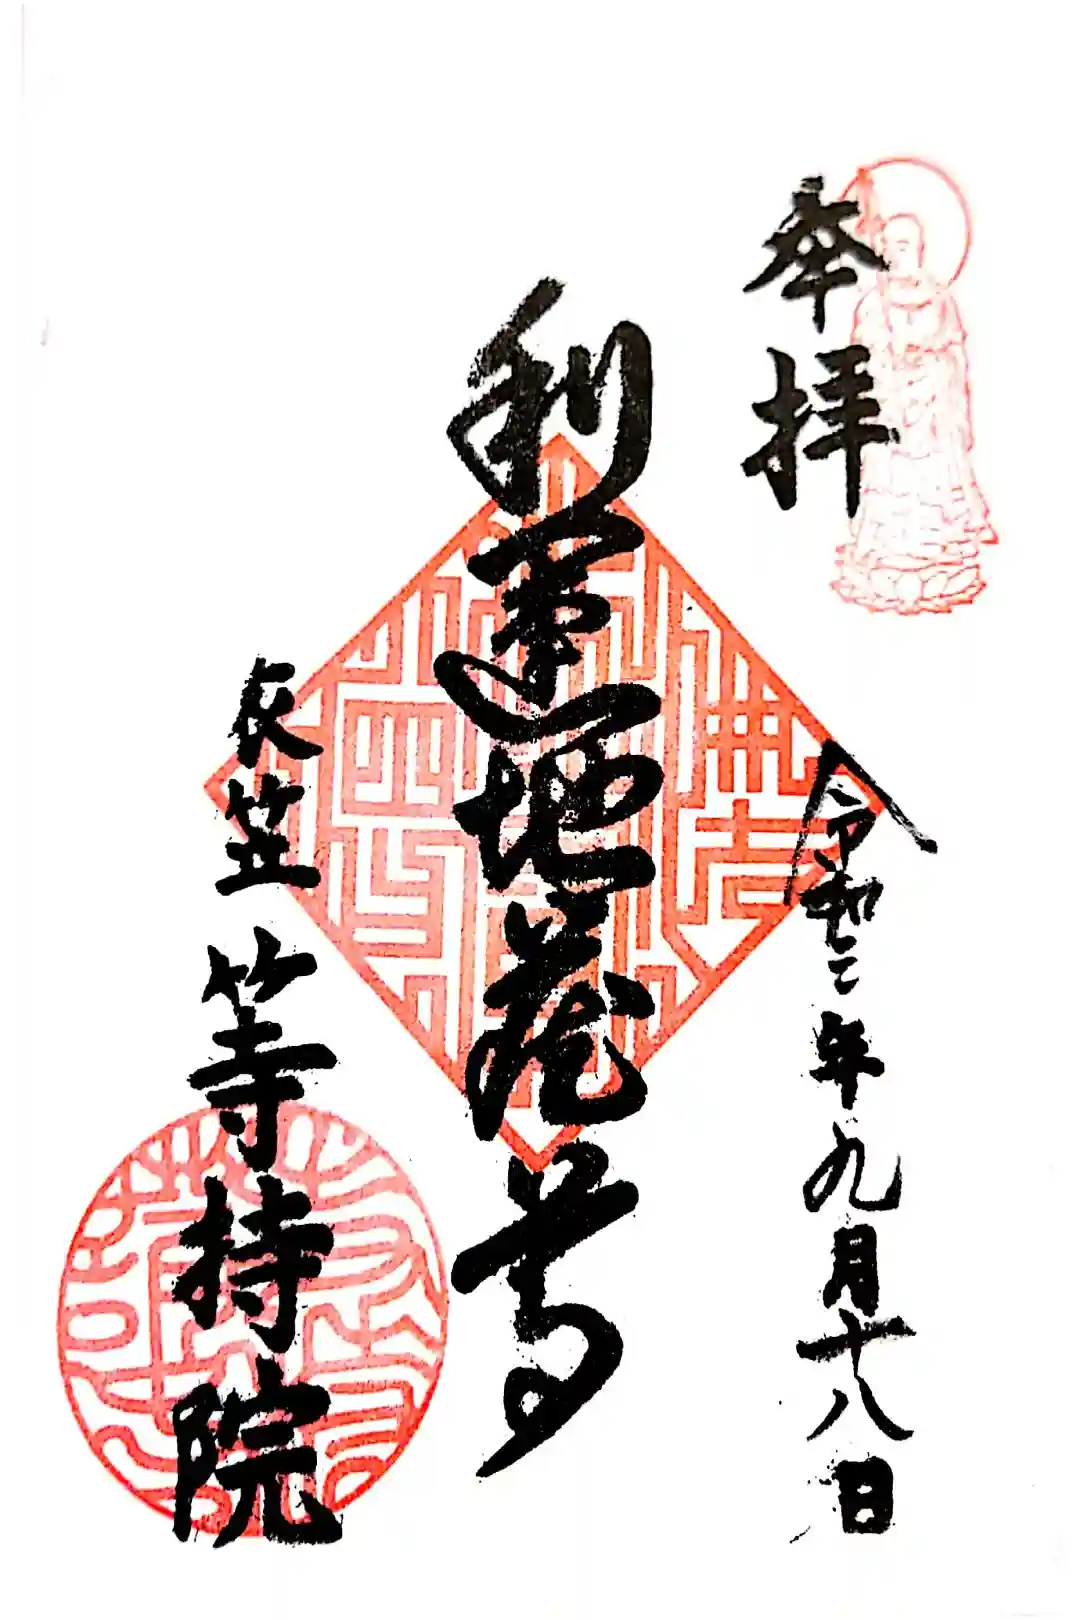 奉拝
令和三年九月十八日
利運地蔵尊
衣笠 等持院